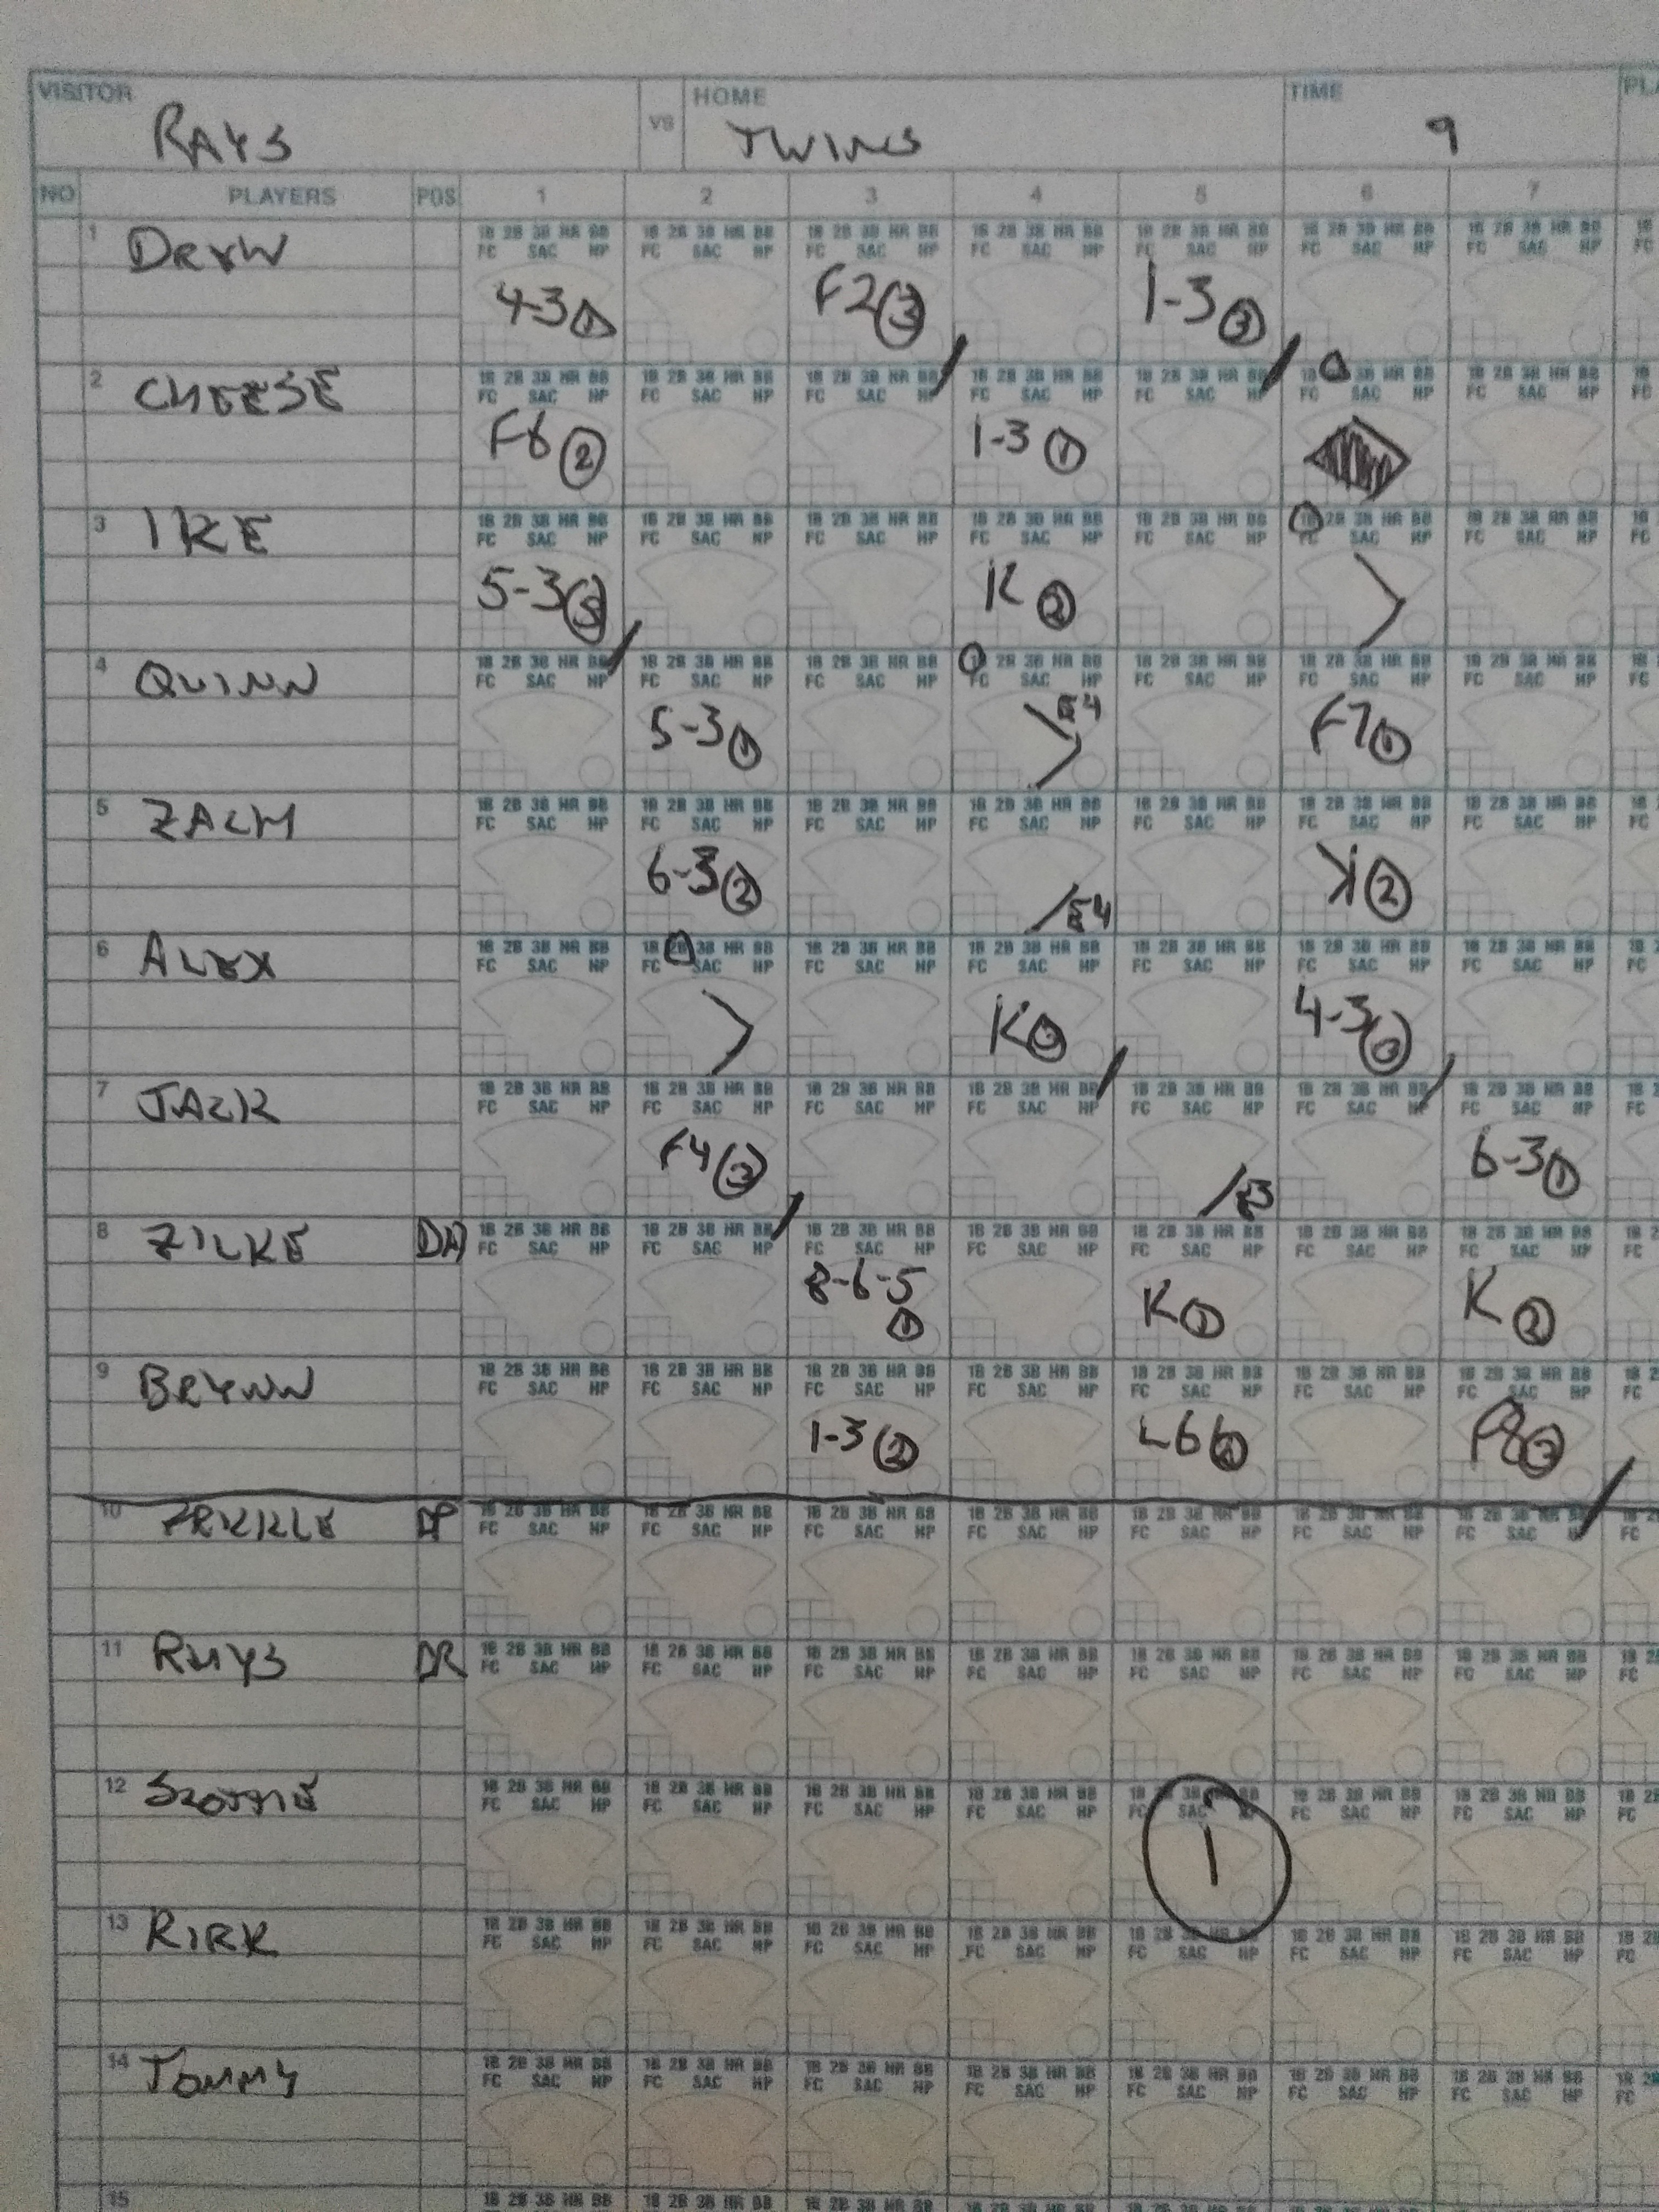 VISITOR VS HOME TIME
RAYS TWINS 9
NO PLAYERS POS 1 2 3 4 5 6 7
1 DREW
4-3 1 F2 3 1-3 3
2 CHEESE
F6 2 1-3 1
3 IKE
5-3 3 K 2
4 QUINN
5-3 1 E4 F7 1
5 ZACH
6-3 2 E4 K 2
6 ALEX
K 3 4-3 3
7 JACK
F4 3 E3 6-3 1
8 ZILKE DH
8-6-5 1 K 1 K 2
9 BRYNN
1-3 2 L6 2 F8 3
10
11 RHYS DR
12 SCOTTIE
1
13 KIRK
14 TOMMY
15
1B 2B 3B HR BB
FC SAC HP